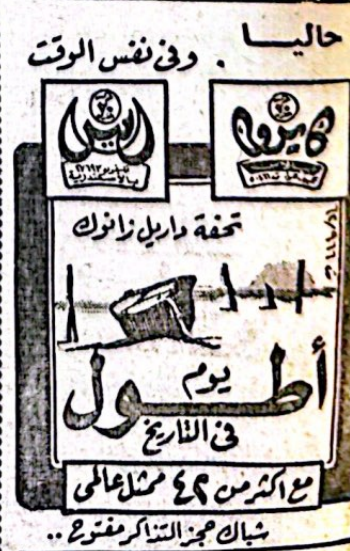 حاليا
وفى نفس الوقت
كايرو
ريو
بالاسكندرية
تحفة داريل زانوك
أطول
يوم
فى التاريخ
مع اكثر من ٤٢ ممثل عالمى
شباك حجز التذاكر مفتوح ..